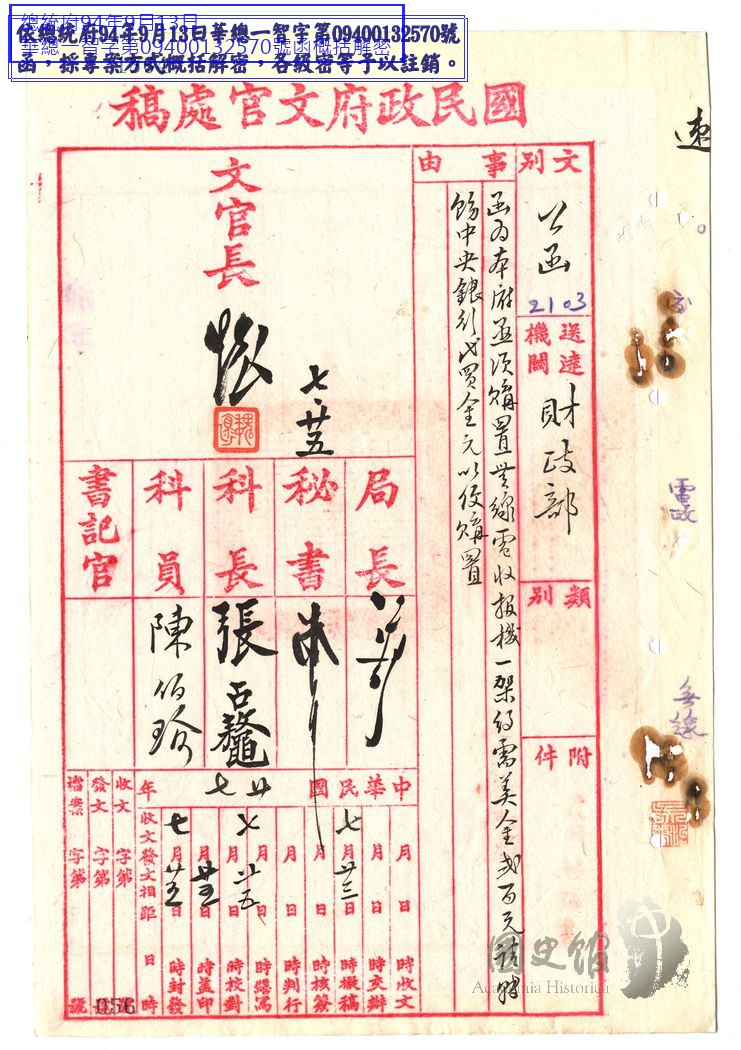 總統府94年9月13日
華總一智字第09400132570號函概括解密
依總統府94年9月13日華總一智字第09400132570號
函，採專案方式概括解密，各級密等予以註銷。
國民政府文官處稿
速
文別
公函
2103
送達機關
財政部
類別
附件
事由
函為本府亟須購置無線電收報機一架約需美金貳百元請轉
飭中央銀行代買金元以便購置
文官長
七、廿五
局長
秘書
科長
張
科員
陳伯
書記官
電政
中華民國廿七年
月日時收文
月日時交辦
七月廿三日時擬稿
月日時核簽
月日時判行
月日時繕寫
七月廿五日時校對
月廿五日時蓋印
七月廿五日時封發
收文發文相距日時
收文字第號
發文字第號
檔案字第號
056
國史館
Academia Historica